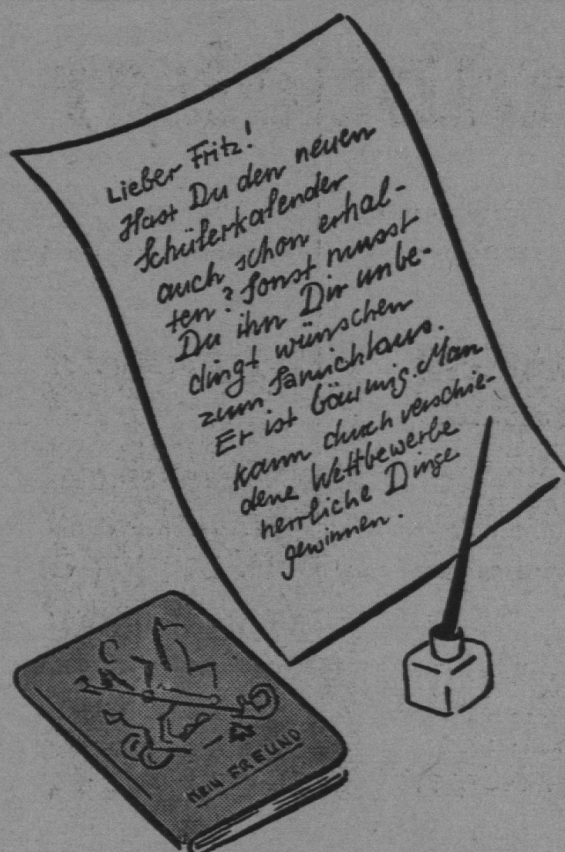 Lieber Fritz!
Hast Du den neuen
Schülerkalender
auch schon erhal-
ten? Sonst musst
Du ihn Dir unbe-
dingt wünschen
zum Samichlaus.
Er ist bäumig. Man
kann durch verschie-
dene Wettbewerbe
herrliche Dinge
gewinnen.
MEIN FREUND